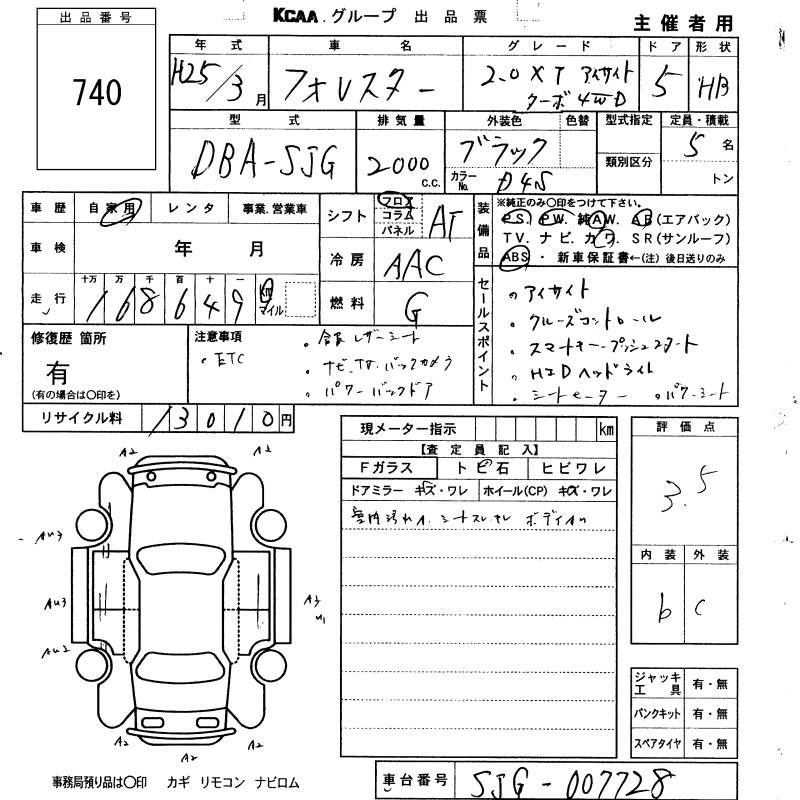 KCAA グループ 出品票
主催者用
出品番号
740
年式 車名 グレード ドア 形状
H25/3月 フォレスター 2.0XT アイサイト
ターボ 4WD 5 HB
型式 排気量 外装色 色替 型式指定 定員・積載
DBA-SJG 2000 c.c. ブラック 類別区分 5名
カラーNo. D4S トン
車歴 自家用 レンタ 事業.営業車
車検 年 月
走行 十万 万 千 百 十 一
168649 km マイル
シフト フロア コラム パネル AT
冷房 AAC
燃料 G
装備品
※純正のみ○印をつけて下さい。
P.S. P.W. 純A.W. A.B(エアバック)
T.V. ナビ. カワ. S.R(サンルーフ)
ABS ・ 新車保証書←(注)後日送りのみ
修復歴 箇所
有
(有の場合は○印を)
注意事項
・ETC
・レザーシート
・パワーバックドア
セールスポイント
・アイサイト
・クルーズコントロール
・スマートキー・プッシュスタート
・HIDヘッドライト
・シートヒーター ・パワーシート
リサイクル料 13010円
現メーター指示 km
【査定員記入】
Fガラス トビ石 ヒビワレ
ドアミラー キズ・ワレ ホイール(CP) キズ・ワレ
室内汚れ
評価点
3.5
内装 外装
b C
A2 A2
AU3
AU3 A3
U1
AU2
A2 A2 A2
ジャッキ工具 有・無
パンクキット 有・無
スペアタイヤ 有・無
事務局預り品は○印 カギ リモコン ナビロム
車台番号 SJG-007728